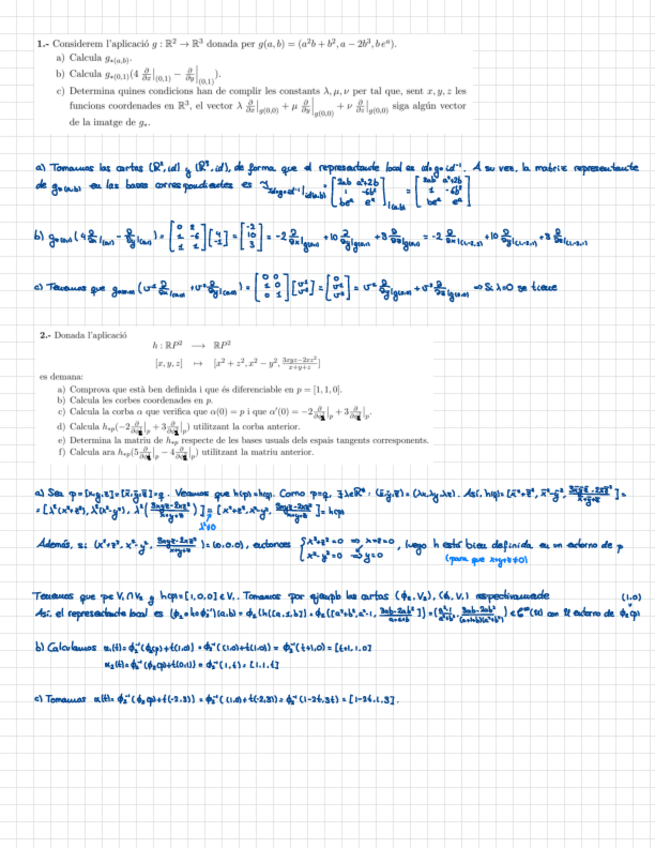 1.- Considerem l'aplicació g : ℝ² → ℝ³ donada per g(a, b) = (a²b + b², a − 2b³, beᵃ).
a) Calcula g*(a,b).
b) Calcula g*(0,1)(4 ∂/∂x|(0,1) − ∂/∂y|(0,1)).
c) Determina quines condicions han de complir les constants λ, μ, ν per tal que, sent x, y, z les
funcions coordenades en ℝ³, el vector λ ∂/∂x|g(0,0) + μ ∂/∂y|g(0,0) + ν ∂/∂z|g(0,0) siga algún vector
de la imatge de g*.
a) Tomamos las cartas (ℝ², id) y (ℝ³, id), de forma que el representante local es id∘g∘id⁻¹. A su vez, la matriz representante
de g*(a,b) en las bases correspondientes es J id∘g∘id⁻¹|id(a,b) = [2ab a²+2b; 1 -6b²; beᵃ eᵃ]|(a,b) = [2ab a²+2b; 1 -6b²; beᵃ eᵃ]
b) g*(0,1)(4 ∂/∂x|(0,1) - ∂/∂y|(0,1)) = [0 2; 1 -6; 1 1][4; -1] = [-2; 10; 3] = -2 ∂/∂x|g(0,1) + 10 ∂/∂y|g(0,1) + 3 ∂/∂z|g(0,1) = -2 ∂/∂x|(1,-2,1) + 10 ∂/∂y|(1,-2,1) + 3 ∂/∂z|(1,-2,1)
c) Tenemos que g*(0,0)(v¹ ∂/∂x|(0,0) + v² ∂/∂y|(0,0)) = [0 0; 1 0; 0 1][v¹; v²] = [0; v¹; v²] = v¹ ∂/∂y|g(0,0) + v² ∂/∂z|g(0,0) ⇒ Si λ=0 se tiene
2.- Donada l'aplicació
h : ℝP² ⟶ ℝP²
[x, y, z] ↦ [x² + z², x² − y², (3xyz−2xz²)/(x+y+z)]
es demana:
a) Comprova que està ben definida i que és diferenciable en p = [1, 1, 0].
b) Calcula les corbes coordenades en p.
c) Calcula la corba α que verifica que α(0) = p i que α′(0) = −2 ∂/∂ |p + 3 ∂/∂ |p.
d) Calcula h*p(−2 ∂/∂ |p + 3 ∂/∂ |p) utilitzant la corba anterior.
e) Determina la matriu de h*p respecte de les bases usuals dels espais tangents corresponents.
f) Calcula ara h*p(5 ∂/∂ |p − 4 ∂/∂ |p) utilitzant la matriu anterior.
a) Sea p=[x,y,z]=[x̄,ȳ,z̄]=q. Veamos que h(p)=h(q). Como p=q, ∃λ∈ℝ* : (x̄,ȳ,z̄) = (λx,λy,λz). Así, h(q) = [x̄²+z̄², x̄²-ȳ², (3x̄ȳz̄-2x̄z̄²)/(x̄+ȳ+z̄)] =
= [λ²(x²+z²), λ²(x²-y²), λ²((3xyz-2xz²)/(x+y+z))] = [x²+z², x²-y², (3xyz-2xz²)/(x+y+z)] = h(p)
λ²≠0
Además, si (x²+z², x²-y², (3xyz-2xz²)/(x+y+z)) = (0,0,0), entonces {x²+z²=0 ⇒ x=z=0; x²-y²=0 ⇒ y=0, luego h está bien definida en un entorno de p
(para que x+y+z≠0)
Tenemos que p∈V₁∩V₂ y h(p)=[1,0,0]∈V₁. Tomamos por ejemplo las cartas (ϕ₂,V₂), (ϕ₁,V₁) respectivamente (1,0)
Así, el representante local es (ϕ₁∘h∘ϕ₂⁻¹)(a,b) = ϕ₁(h([a,1,b])) = ϕ₁([a²+b², a²-1, (3ab-2ab²)/(a+1+b)]) = ((a²-1)/(a²+b²), (3ab-2ab²)/((a+1+b)(a²+b²))) ∈ C^∞(U) con U entorno de ϕ₂(p)
b) Calculamos α₁(t) = ϕ₂⁻¹(ϕ₂(p)+t(1,0)) = ϕ₂⁻¹((1,0)+t(1,0)) = ϕ₂⁻¹(t+1,0) = [t+1,1,0]
α₂(t) = ϕ₂⁻¹(ϕ₂(p)+t(0,1)) = ϕ₂⁻¹(1,t) = [1,1,t]
c) Tomamos α(t) = ϕ₂⁻¹(ϕ₂(p)+t(-2,3)) = ϕ₂⁻¹((1,0)+t(-2,3)) = ϕ₂⁻¹(1-2t,3t) = [1-2t,1,3t].